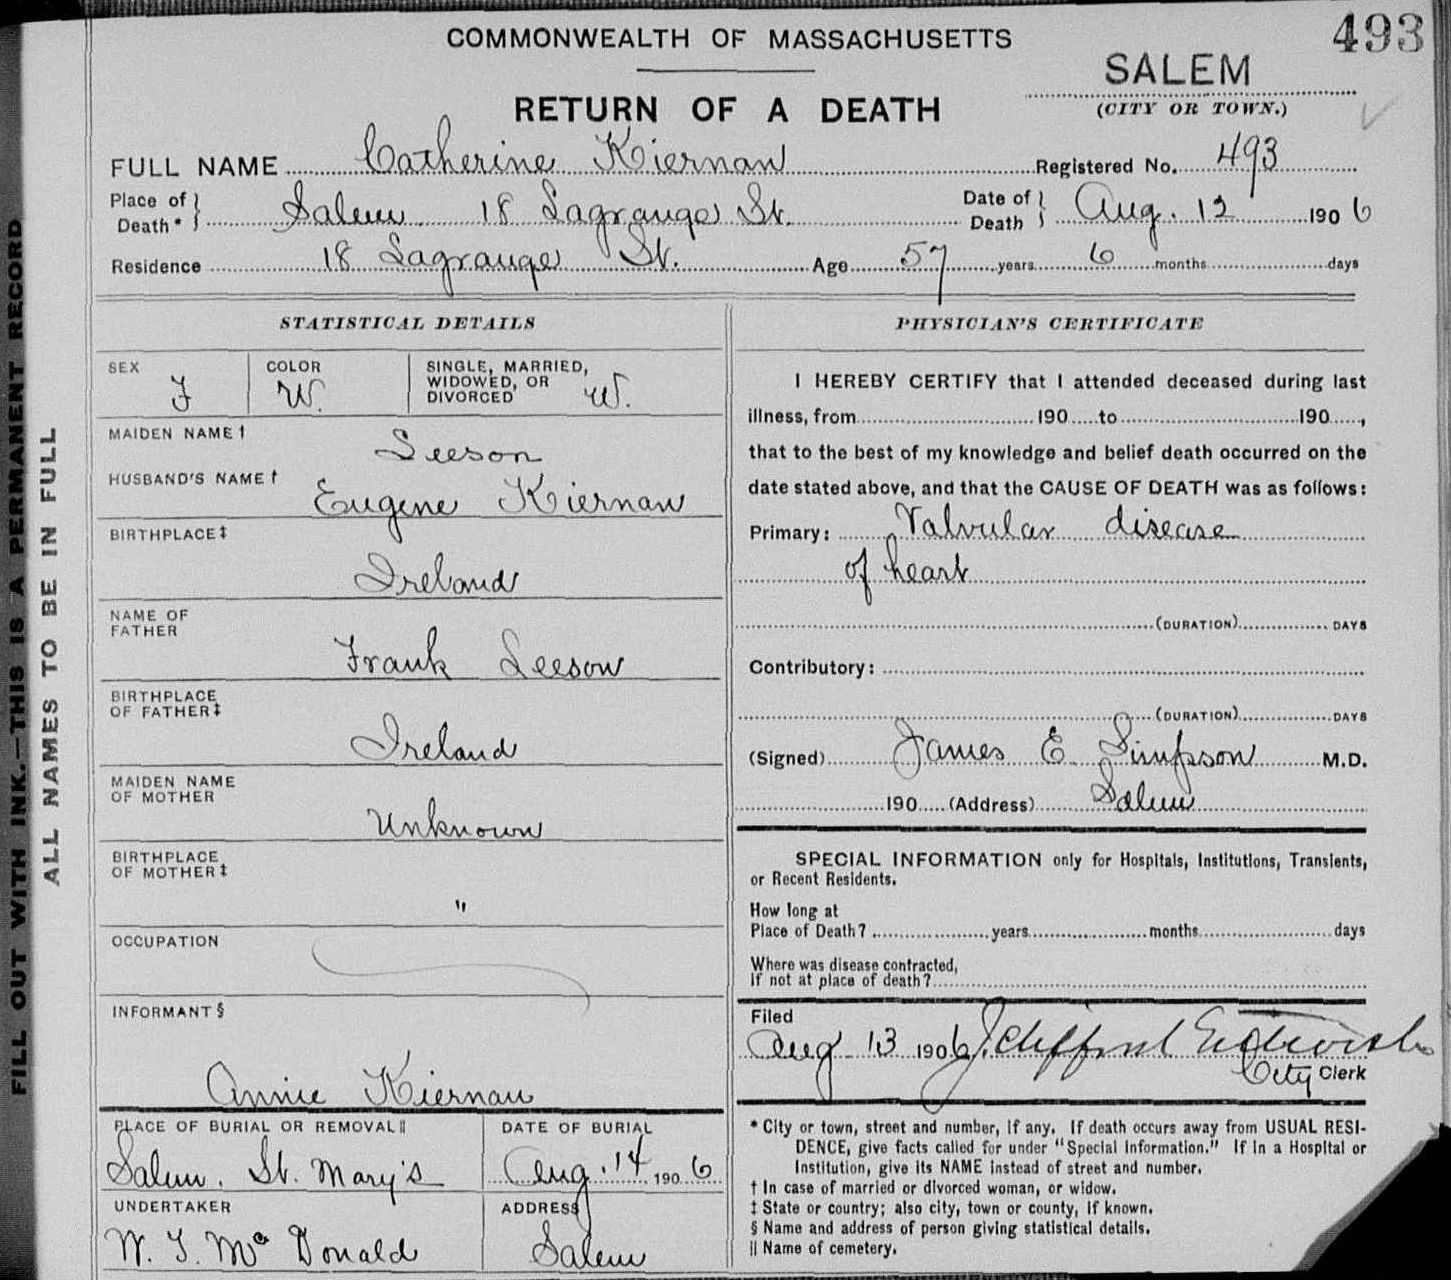 493
COMMONWEALTH OF MASSACHUSETTS
SALEM
(CITY OR TOWN.)
RETURN OF A DEATH
FULL NAME Catherine Kiernan Registered No. 493
Place of Death * Salem. 18 Lagrange St. Date of Death Aug. 12 1906
Residence 18 Lagrange St. Age 57 years 6 months days
FILL OUT WITH INK.—THIS IS A PERMANENT RECORD
ALL NAMES TO BE IN FULL
STATISTICAL DETAILS
SEX F COLOR W. SINGLE, MARRIED, WIDOWED, OR DIVORCED W.
MAIDEN NAME † Leeson
HUSBAND'S NAME † Eugene Kiernan
BIRTHPLACE ‡
Ireland
NAME OF FATHER
Frank Leeson
BIRTHPLACE OF FATHER ‡
Ireland
MAIDEN NAME OF MOTHER
Unknown
BIRTHPLACE OF MOTHER ‡
"
OCCUPATION
INFORMANT §
Annie Kiernan
PLACE OF BURIAL OR REMOVAL ||
Salem. St. Mary's
DATE OF BURIAL
Aug. 14 1906
UNDERTAKER
W. J. McDonald
ADDRESS
Salem
PHYSICIAN'S CERTIFICATE
I HEREBY CERTIFY that I attended deceased during last
illness, from 190 to 190 ,
that to the best of my knowledge and belief death occurred on the
date stated above, and that the CAUSE OF DEATH was as follows:
Primary: Valvular disease
of heart
(DURATION) DAYS
Contributory:
(DURATION) DAYS
(Signed) James E Simpson M.D.
190 (Address) Salem
SPECIAL INFORMATION only for Hospitals, Institutions, Transients,
or Recent Residents.
How long at
Place of Death? years months days
Where was disease contracted,
If not at place of death?
Filed
Aug 13 1906 J. Clifford Entwisle
City Clerk
* City or town, street and number, if any. If death occurs away from USUAL RESI-
DENCE, give facts called for under "Special Information." If in a Hospital or
Institution, give its NAME instead of street and number.
† In case of married or divorced woman, or widow.
‡ State or country; also city, town or county, if known.
§ Name and address of person giving statistical details.
|| Name of cemetery.